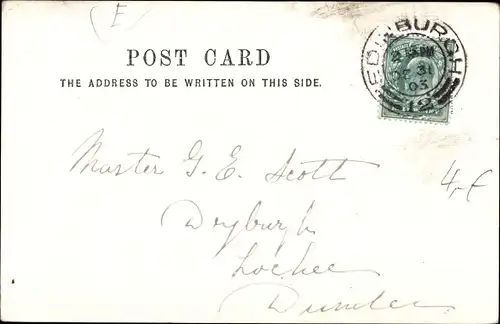 (E
EDINBURGH
2.15PM
DE 31
03
12
POST CARD
THE ADDRESS TO BE WRITTEN ON THIS SIDE.
Master G. E. Scott
4,-E
Dryburgh
Lochee
Dundee